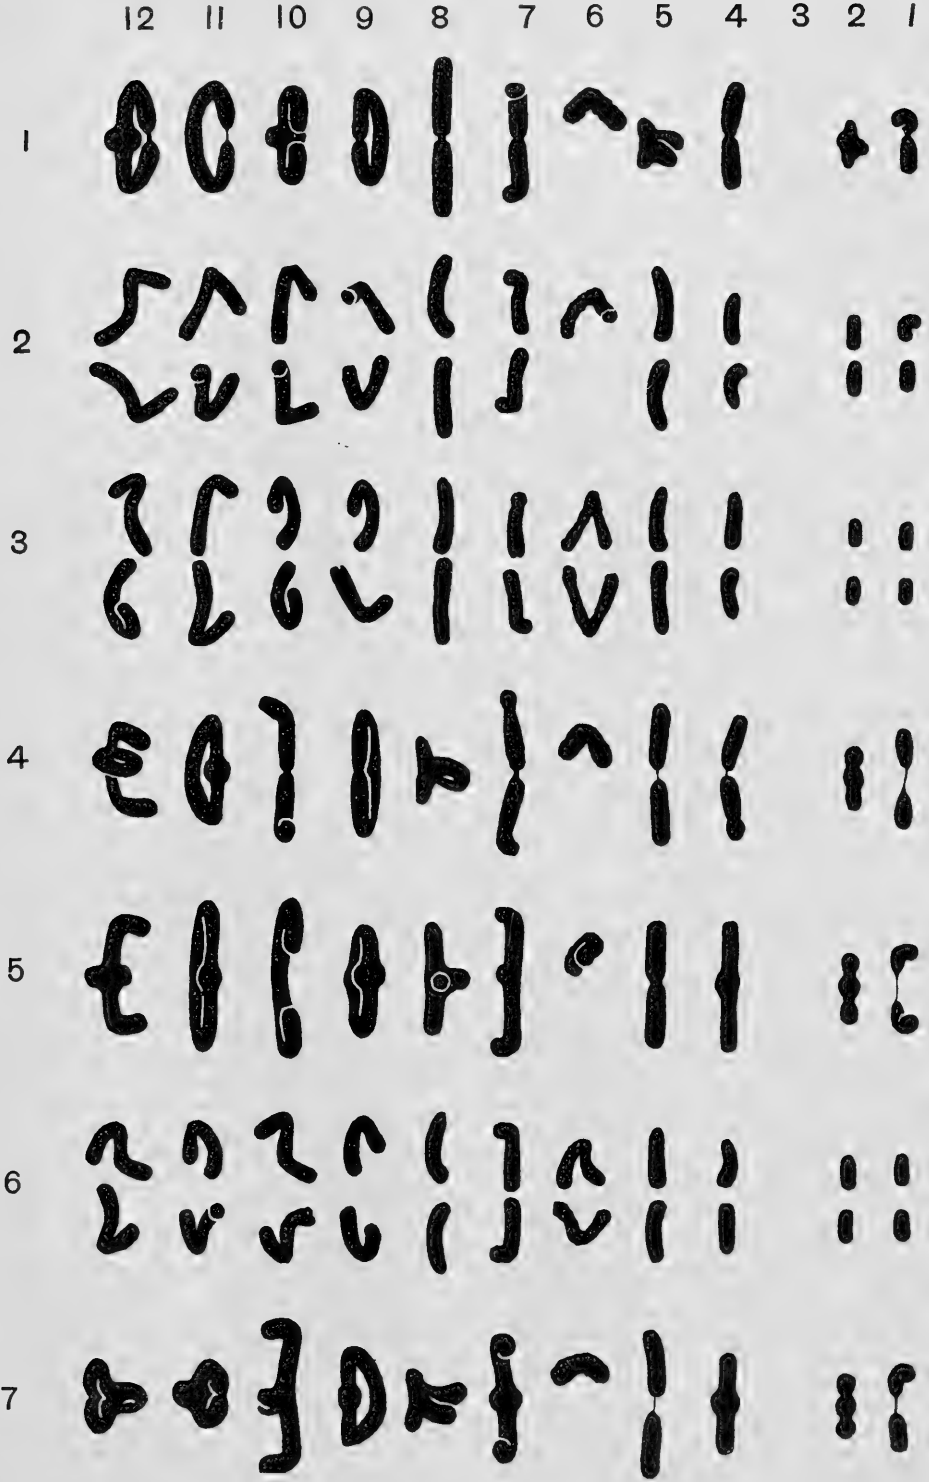 12 11 10 9 8 7 6 5 4 3 2 1
1
2
3
4
5
6
7